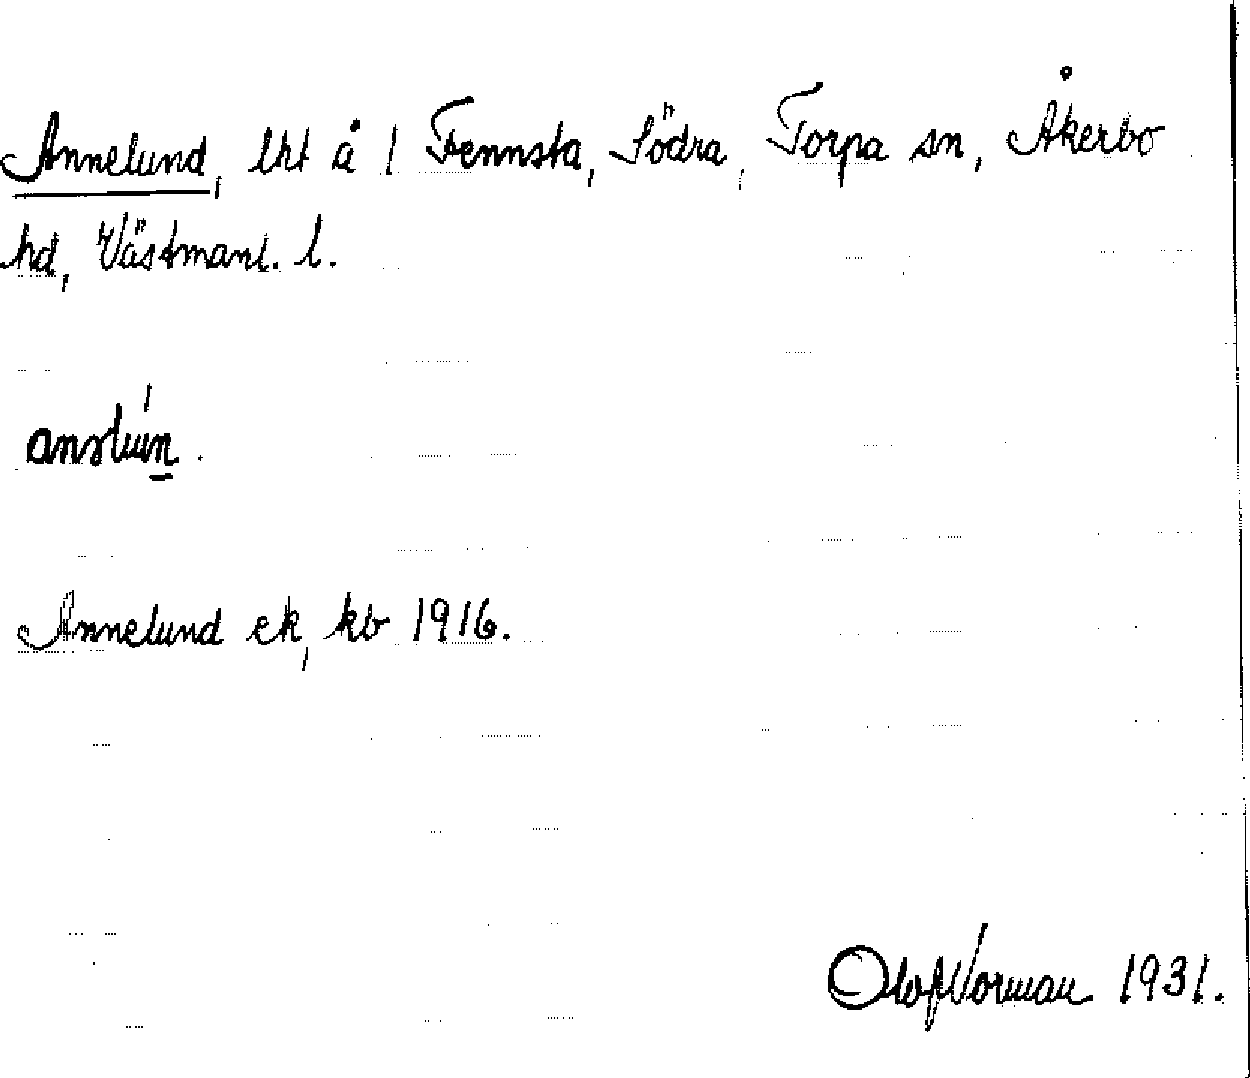 Annelund, lht å 1 Frennsta, Södra, Torpa sn, Åkerbo
hd, Västmanl. l.
Annelund ek, kb 1916.
Olof Norman 1931.